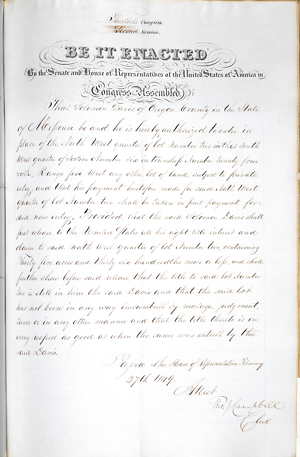 Thirtieth Congress
Second Session
BE IT ENACTED
By the Senate and House of Representatives of the United States of America in
Congress Assembled
That Solomon Davis of Oregon County in the State
of Missouri be and he is hereby authorized to enter in
place of the North West quarter of lot number two in the south
West quarter of section number six in township number twenty four
Range five west any other lot of land, subject to private
entry, and that his payment heretofore made for said North West
quarter of lot number two shall be taken in part payment for
said new entry. Provided that the said Solomon Davis shall
first release to the United States all his right title interest and
claim to said north west quarter of lot number two, containing
thirty five acres and thirty six hundredths more or less, and shall
further show before said release that the title to said lot number
two is still in him the said Davis and that the said lot
has not been in any way incumbered by mortgage, judgment,
taxes or in any other manner and that the title thereto is in
every respect as good as when the same was entered by the
said Davis.
Passed the House of Representatives February
27th 1849
Attest
Tho. J. Campbell
Clerk